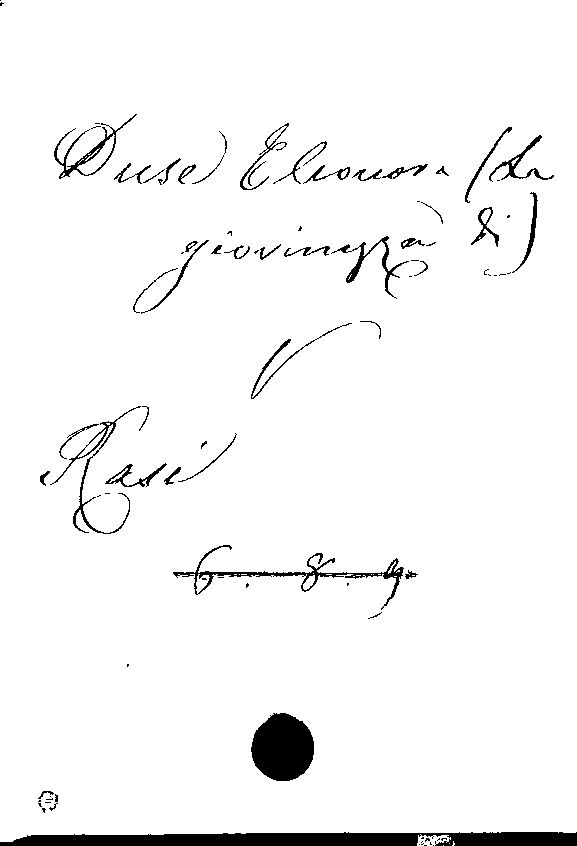 Duse Eleonora (La
giovinezza di)
V
Rasi
6.8.9.